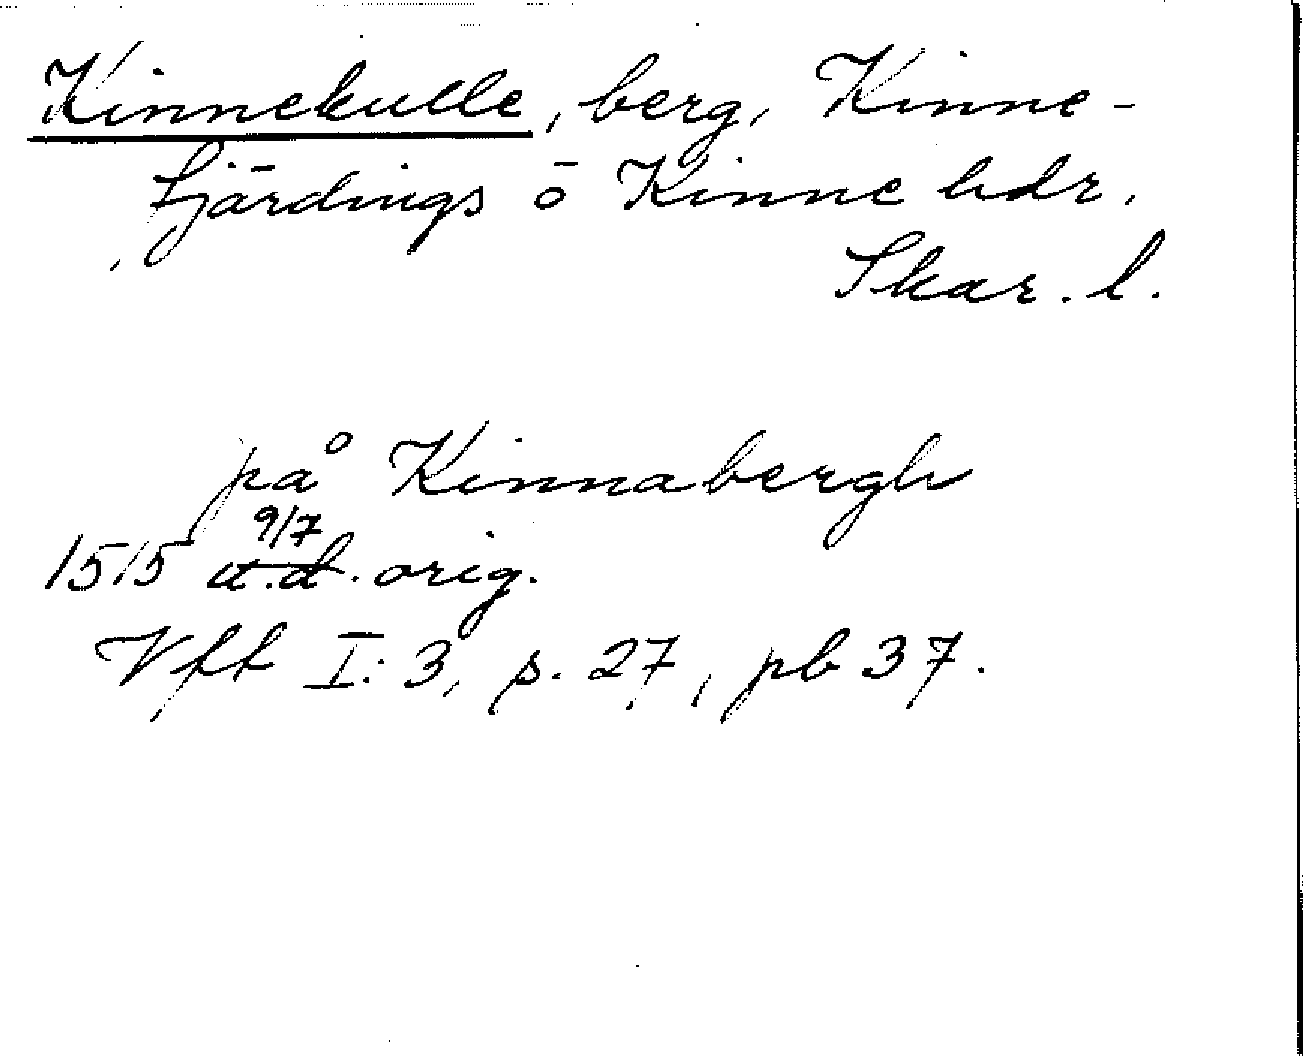 Kinnekulle, berg, Kinne-
fjärdings o Kinne hdr.
Skar. l.
på Kinnabergh
9/7
1515 u.d. orig.
Vfft I:3, s. 27, pb 37.